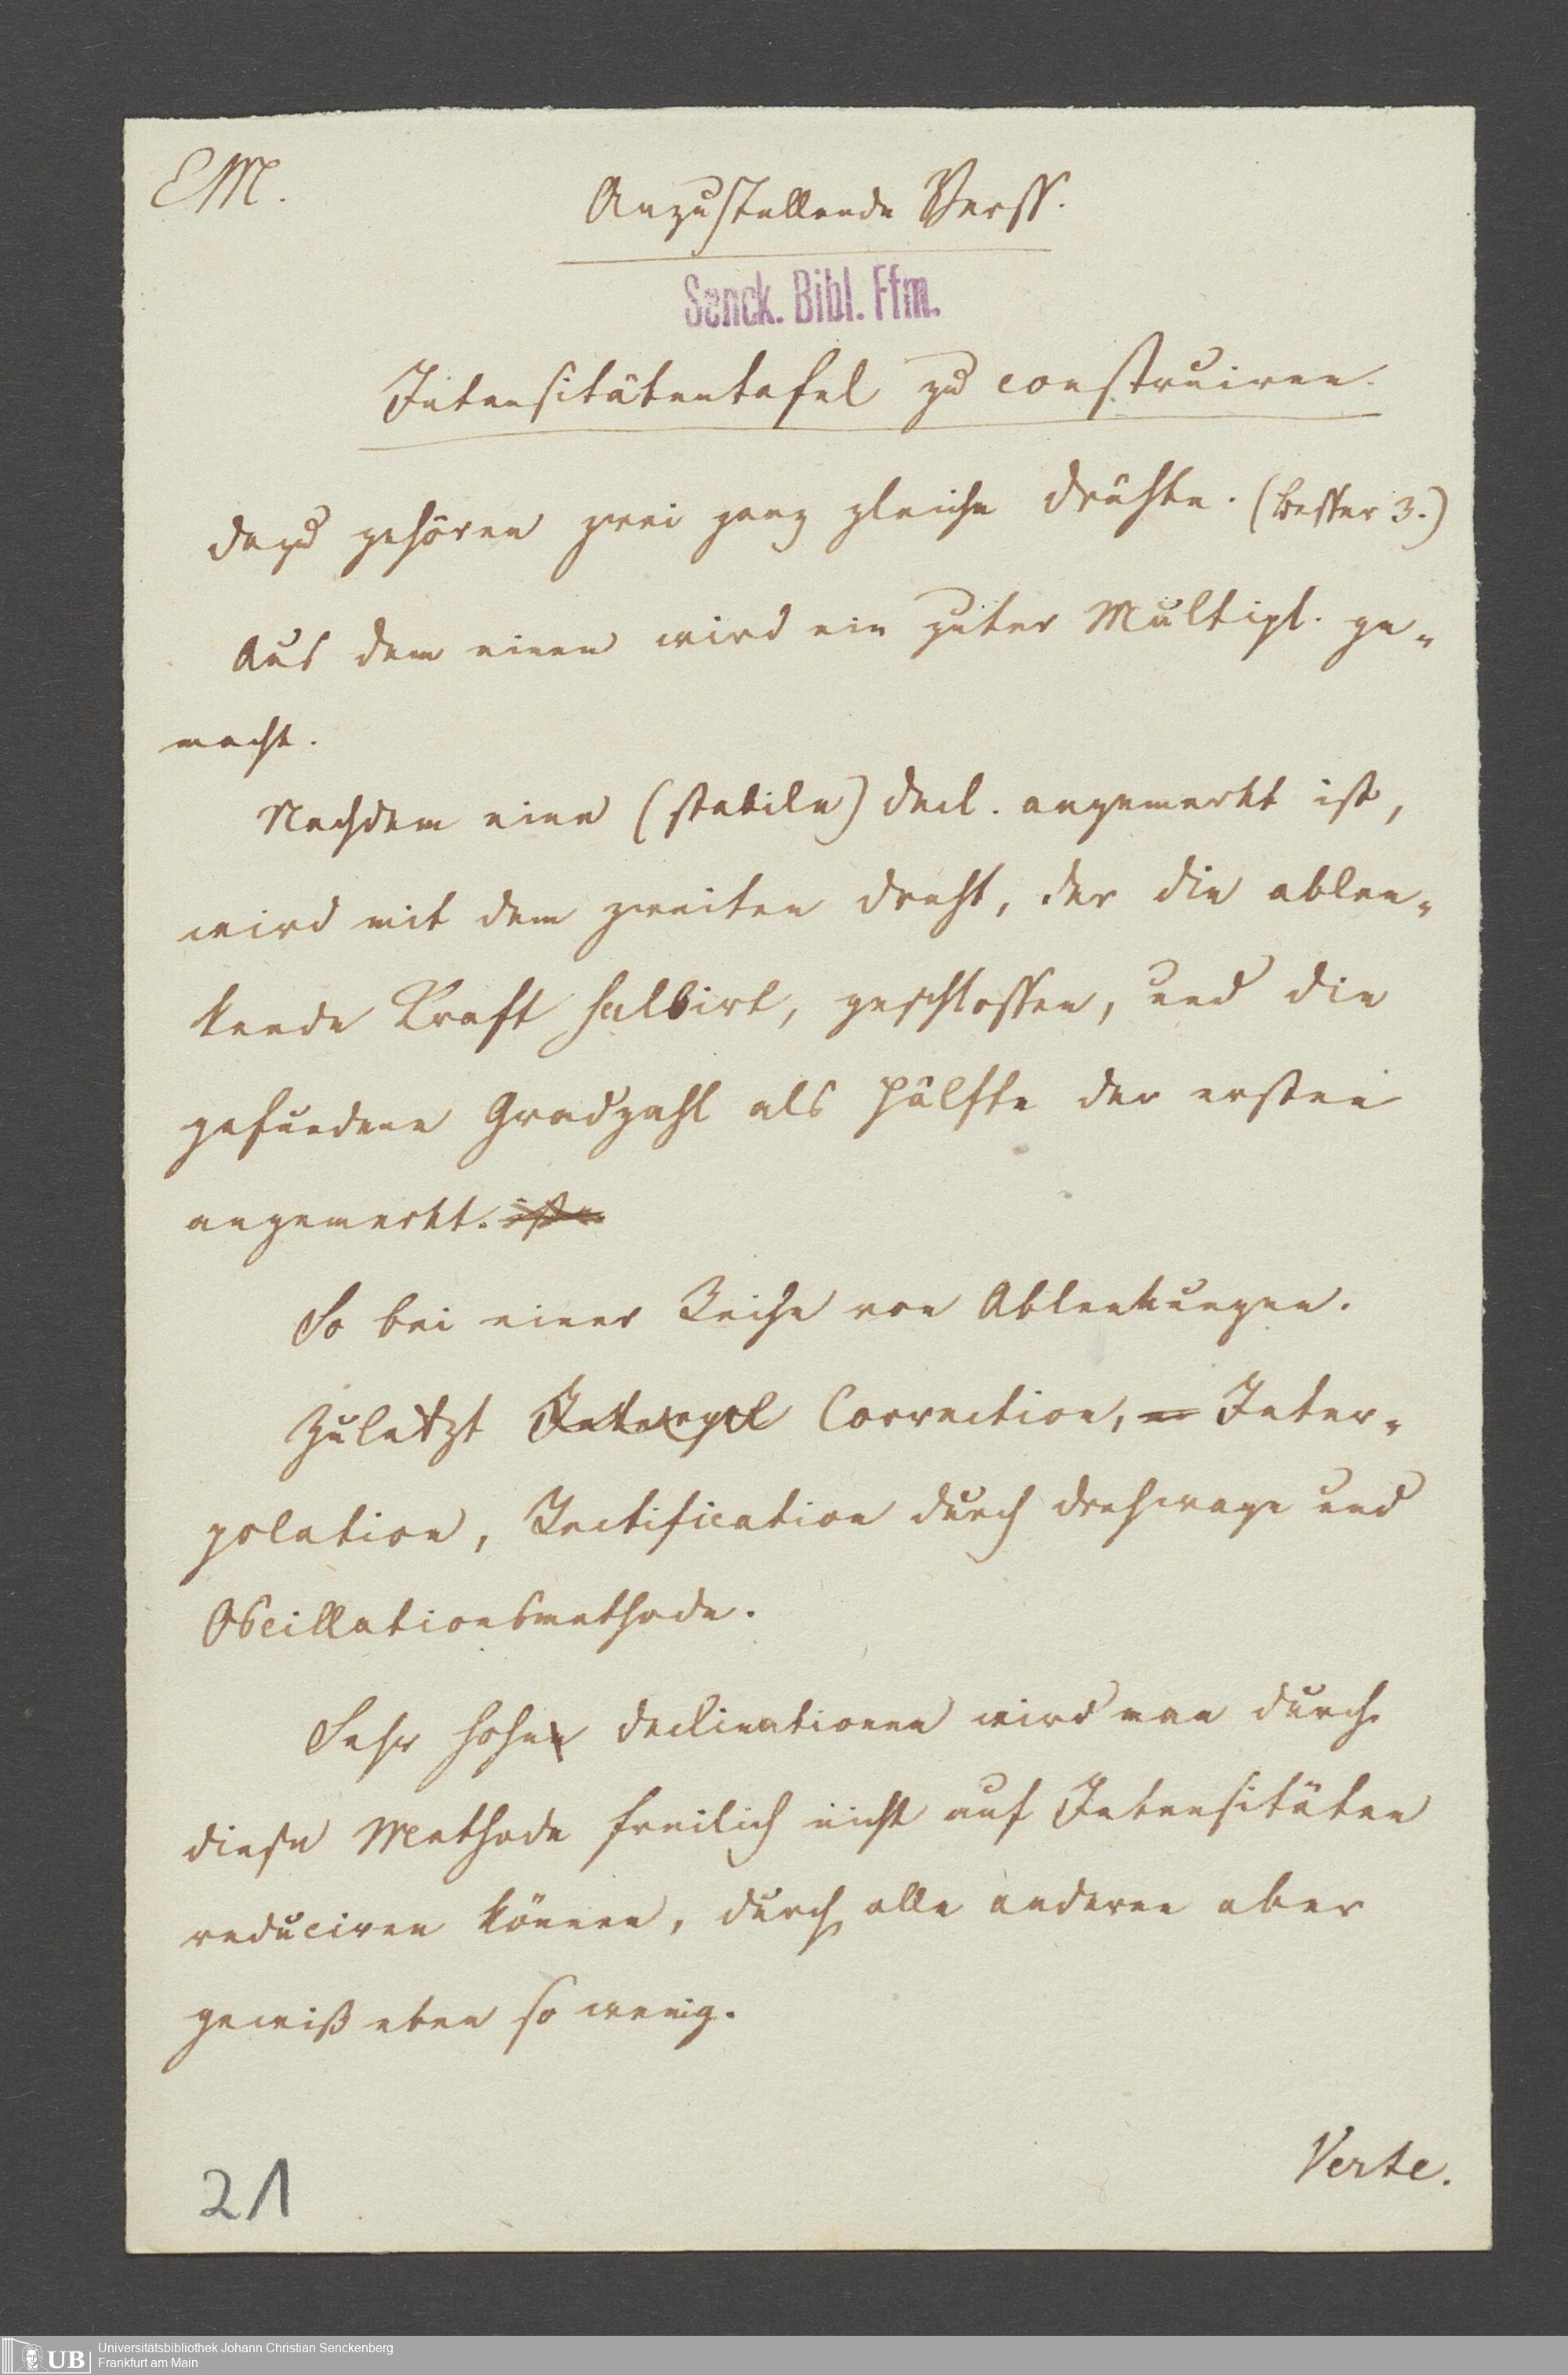 EM.
Anzustellende Verss.
Senck. Bibl. Ffm.
Intensitätentafel zu construiren.
Dazu gehören zwei ganz gleiche Drähte. (besser 3.)
Aus dem einen wird ein guter Multipl. ge-
macht.
Nachdem eine (stabile) Decl. angemerkt ist,
wird mit dem zweiten Draht, der die ablen-
kende Kraft halbirt, geschlossen, und die
gefundene Gradzahl als Hälfte der ersten
angemerkt. ist.
So bei einer Reihe von Ablenkungen.
Zuletzt Interpol Correction, Inter-
polation, Rectification durch Drehwage und
Oscillationsmethode.
Sehr hohe Declinationen wird man durch
diese Methode freilich nicht auf Intensitäten
reduciren können, durch alle anderen aber
gewiß eben so wenig.
Verte.
21
UB
Universitätsbibliothek Johann Christian Senckenberg
Frankfurt am Main